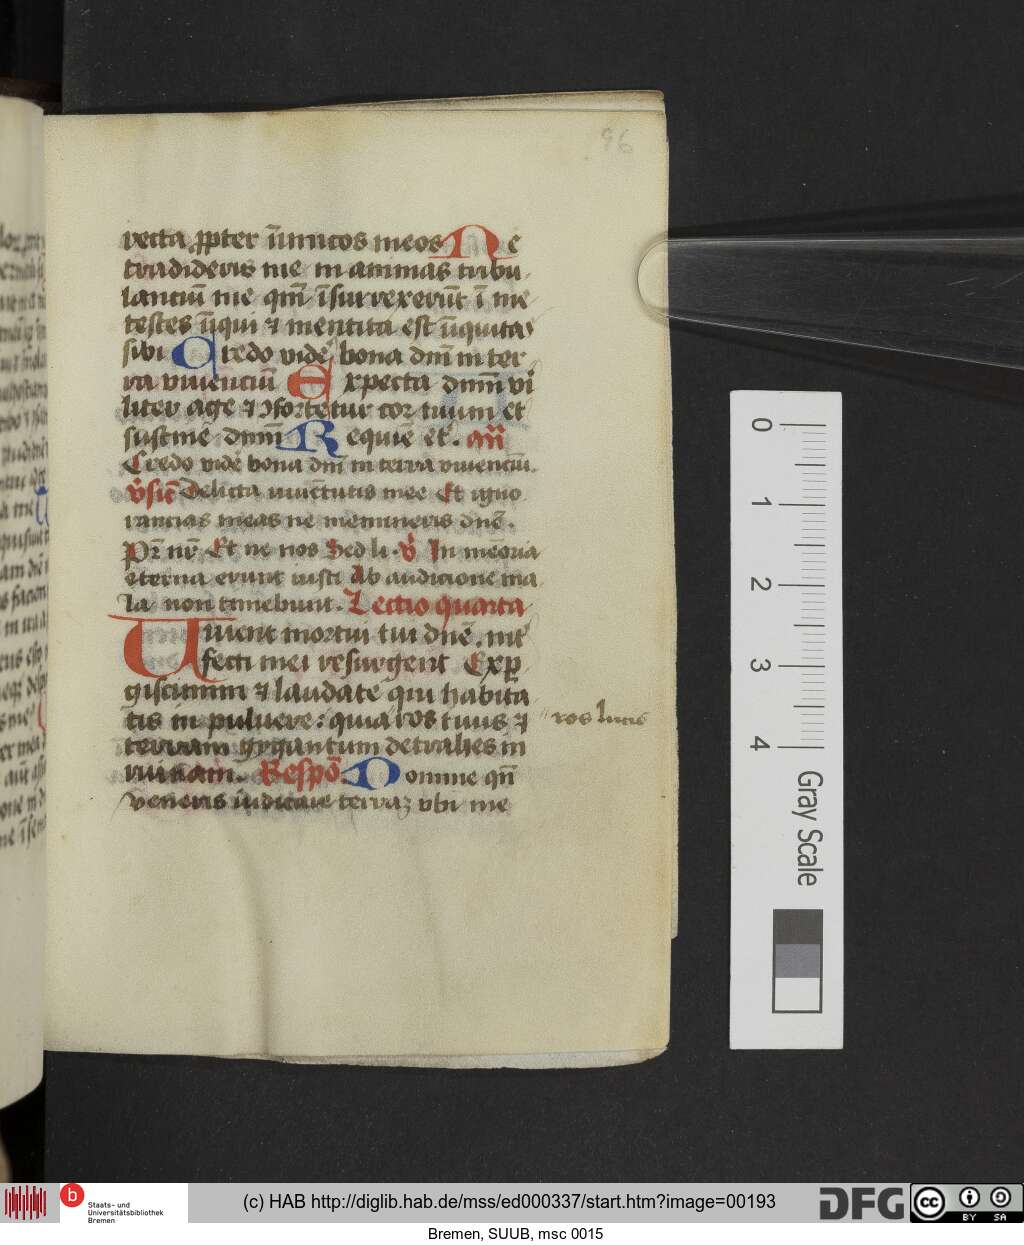 96
recta ꝓpter īimicos meos Ne
tradideris me in animas tribu
lanciū me qm̄ īsurrexerūt ī me
testes īiqui ⁊ mentita est īiquitas
sibi Credo videˉ bona dnī in ter
ra viuenciū Expecta dnm̄ vi
liter age ⁊ ꝯfortetur cor tuum et
sustine dnm̄ Requiē et̄. an̄
Credo videˉ bona dnī in terra viuenciū.
v̄sic̄ Delicta iuuētutis mee Et igno
rancias meas ne memineris dnē.
Pr̄ nr̄ Et ne nos Sed li. v̄ In mēoria
eterna erunt iusti Ab audicione ma
la non timebunt. Lectio quarta
Uiuent mortui tui dnē. int̄
fecti mei resurgent Exꝑ
giscimini ⁊ laudate qui habita
tis in puluere: quia ros tuus ⁊
" ros lucis
terram gygantum detrahes in
ruinam. Respō. Domine qn̄
veneris iudicare terraꝫ vbi me
0
1
2
3
4
Gray Scale
b Staats- und
Universitätsbibliothek
Bremen
(c) HAB http://diglib.hab.de/mss/ed000337/start.htm?image=00193
DFG
cc BY SA
Bremen, SUUB, msc 0015